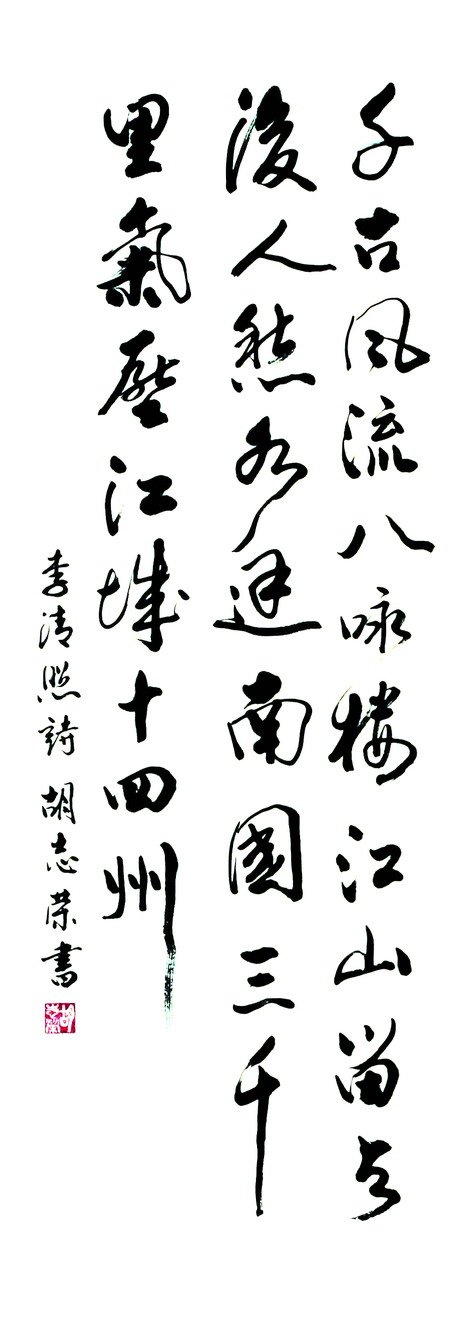 千古风流八咏楼江山留与
後人愁水通南國三千
里氣壓江城十四州
李清照詩 胡志荣書